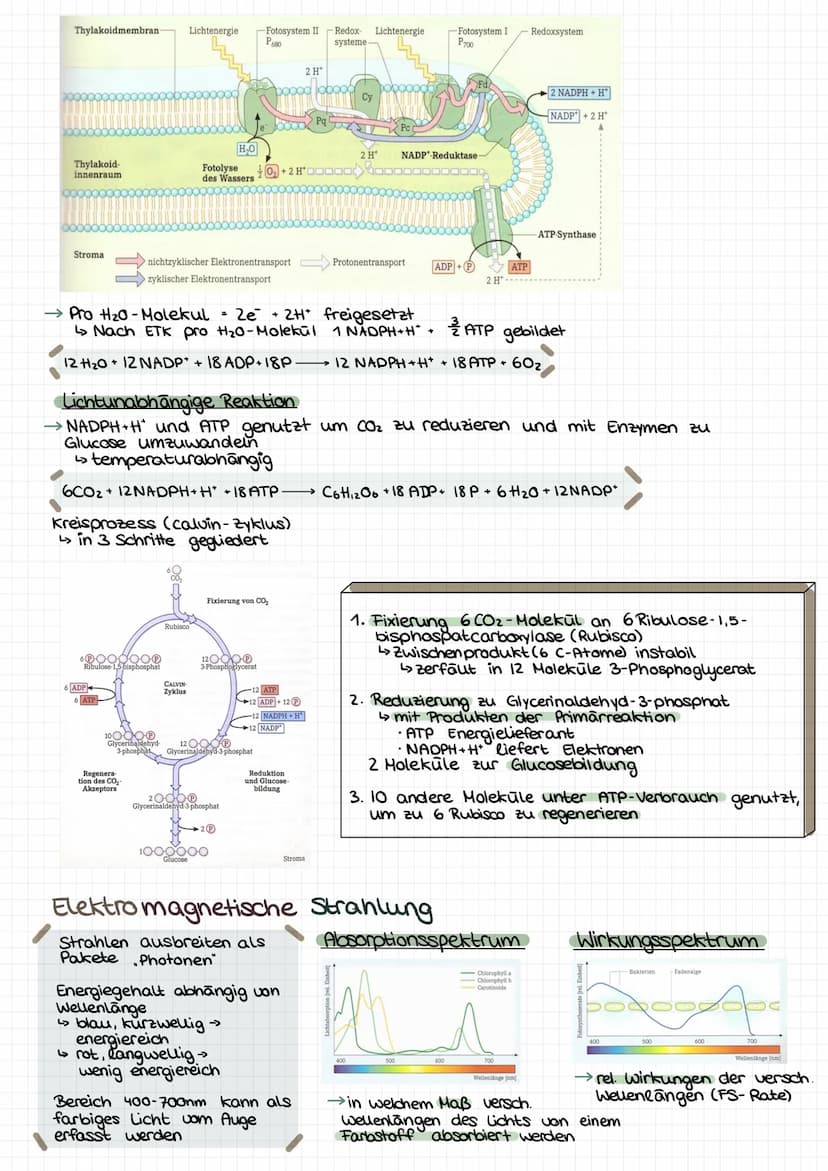 Thylakoidmembran
Lichtenergie
Fotosystem II
P680
Redox-
systeme
Lichtenergie
Fotosystem I
P700
Redoxsystem
2 H⁺
Cy
Fd
Pq
Pc
e⁻
2 NADPH + H⁺
NADP⁺ + 2 H⁺
H₂O
2 H⁺
NADP⁺-Reduktase
Thylakoid-
innenraum
Fotolyse
des Wassers
½ O₂ + 2 H⁺
ATP-Synthase
Stroma
nichtzyklischer Elektronentransport
Protonentransport
zyklischer Elektronentransport
ADP + P
ATP
2 H⁺
→ Pro H₂O-Molekül = 2e⁻ + 2H⁺ freigesetzt
↳ Nach ETK pro H₂O-Molekül 1 NADPH+H⁺ + 3/2 ATP gebildet
12 H₂O + 12 NADP⁺ + 18 ADP+18P → 12 NADPH+H⁺ + 18 ATP + 6O₂
Lichtunabhängige Reaktion
→ NADPH+H⁺ und ATP genutzt um CO₂ zu reduzieren und mit Enzymen zu
Glucose umzuwandeln
↳ temperaturabhängig
6CO₂ + 12NADPH+H⁺ +18ATP → C₆H₁₂O₆ +18 ADP+ 18P + 6H₂O +12NADP⁺
Kreisprozess (Calvin-Zyklus)
↳ in 3 Schritte gegliedert
6
CO₂
Fixierung von CO₂
Rubisco
6 P P
Ribulose-1,5-bisphosphat
12 P
3-Phosphoglycerat
CALVIN-
Zyklus
6 ADP
6 ATP
12 ATP
12 ADP + 12 P
12 NADPH + H⁺
12 NADP⁺
10 P
Glycerinaldehyd-
3-phosphat
12 P
Glycerinaldehyd-3-phosphat
Regenera-
tion des CO₂-
Akzeptors
Reduktion
und Glucose-
bildung
2 P
Glycerinaldehyd-3-phosphat
2 P
1
Glucose
Stroma
1. Fixierung 6 CO₂-Molekül an 6 Ribulose-1,5-
bisphospatcarboxylase (Rubisco)
↳ Zwischenprodukt (6 C-Atome) instabil
↳ zerfällt in 12 Moleküle 3-Phosphoglycerat
2. Reduzierung zu Glycerinaldehyd-3-phosphat
↳ mit Produkten der Primärreaktion
· ATP Energielieferant
· NADPH+H⁺ liefert Elektronen
2 Moleküle zur Glucosebildung
3. 10 andere Moleküle unter ATP-Verbrauch genutzt,
um zu 6 Rubisco zu regenerieren
Elektromagnetische Strahlung
Strahlen ausbreiten als
Pakete „Photonen"
Energiegehalt abhängig von
Wellenlänge
↳ blau, kurzwellig →
energiereich
↳ rot, langwellig →
wenig energiereich
Bereich 400-700nm kann als
farbiges Licht vom Auge
erfasst werden
Absorptionsspektrum
Lichtabsorption [rel. Einheit]
Chlorophyll a
Chlorophyll b
Carotinoide
400 500 600 700
Wellenlänge [nm]
→ in welchem Maß versch.
Wellenlängen des Lichts von einem
Farbstoff absorbiert werden
Wirkungsspektrum
Fotosyntheserate [rel. Einheit]
Bakterien
Fadenalge
400 500 600 700
Wellenlänge [nm]
→ rel. Wirkungen der versch.
Wellenlängen (FS-Rate)